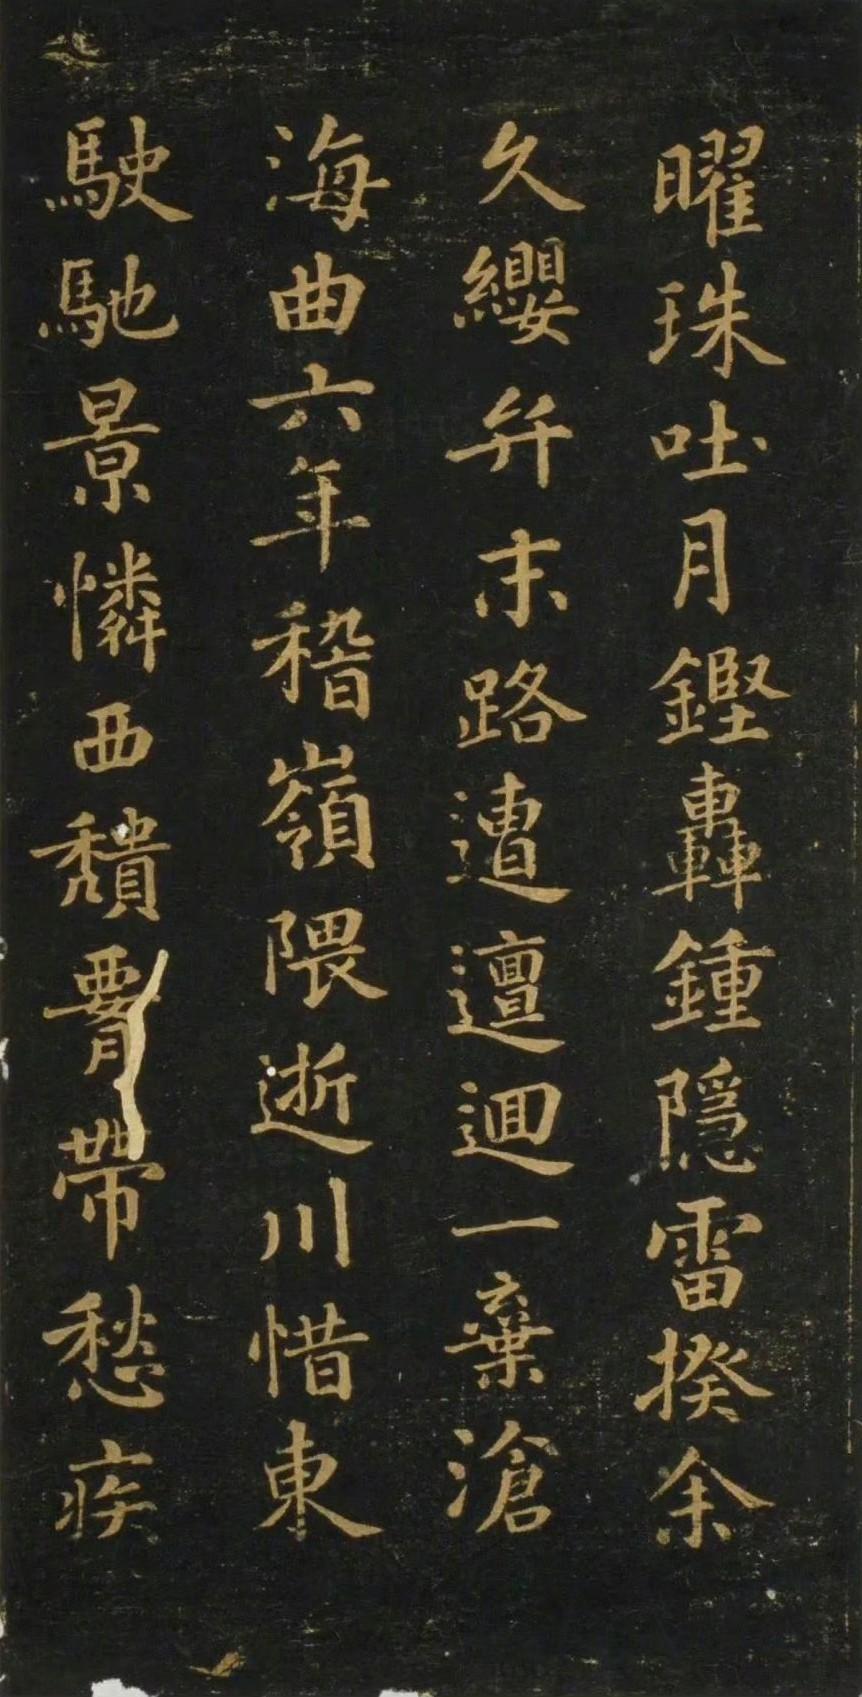 曜珠吐月鏗轟鍾隱雷揆余
久纓弁末路遭邅迴一棄滄
海曲六年稽嶺隈逝川惜東
駛馳景憐西頹腰帶愁疾